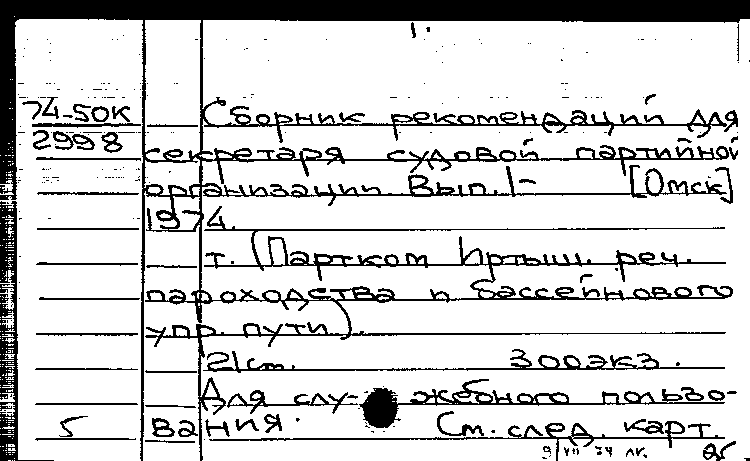 1.
74-50К Сборник рекомендаций для
2998 секретаря судовой партийной
организации. Вып.1- [Омск]
1974.
т. (Партком Иртыш. реч.
пароходства и бассейнового
упр. пути).
21 см. 300 экз.
Для слу- жебного пользо-
5 вания. См. след. карт.
9/VII 74